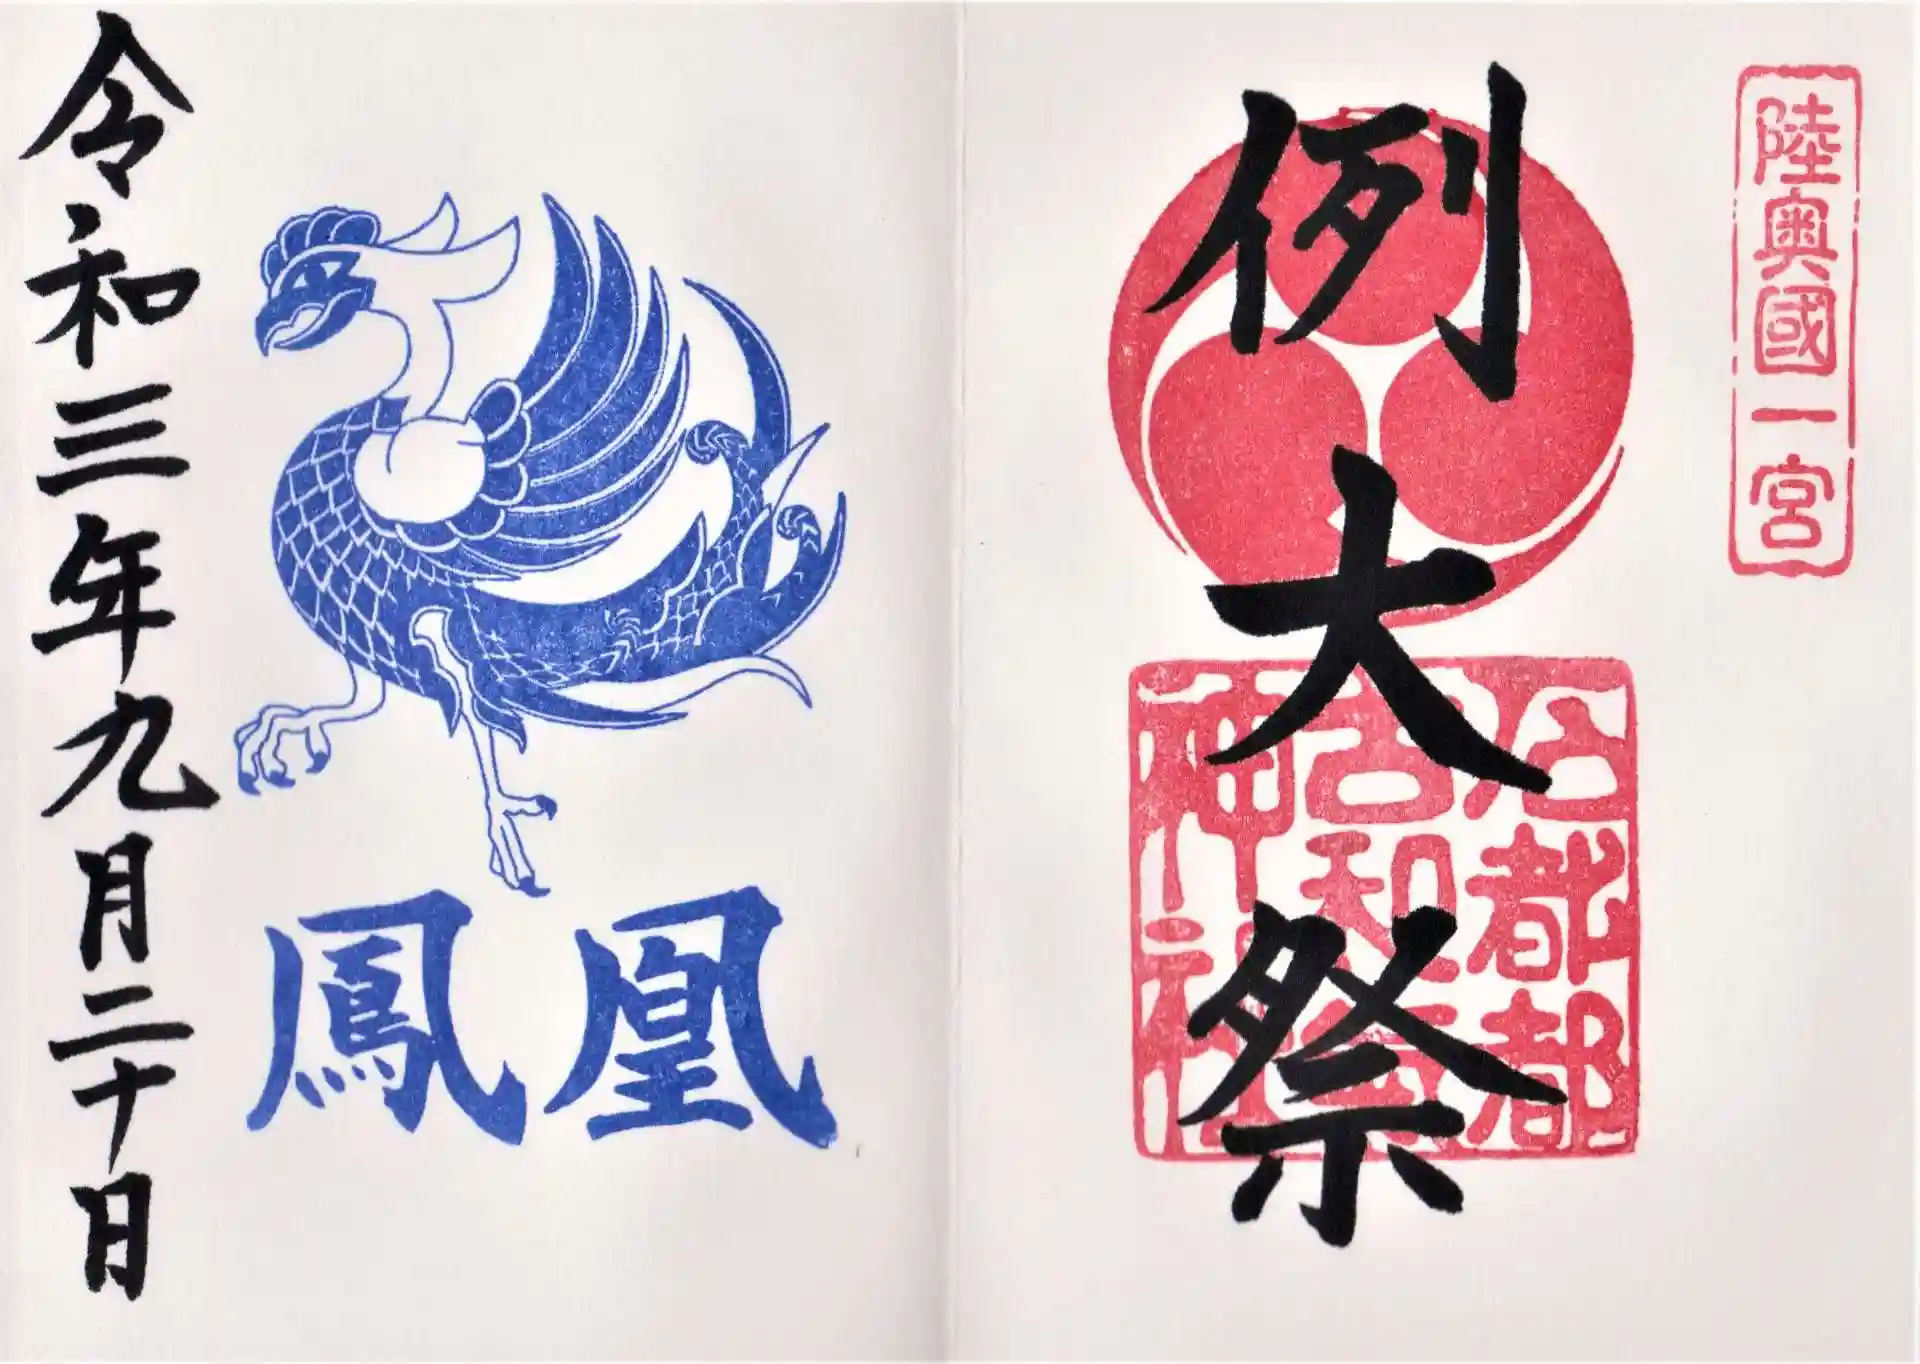 陸奥國一宮
例大祭
石都都
古和氣
神社
鳳凰
令和三年九月二十日